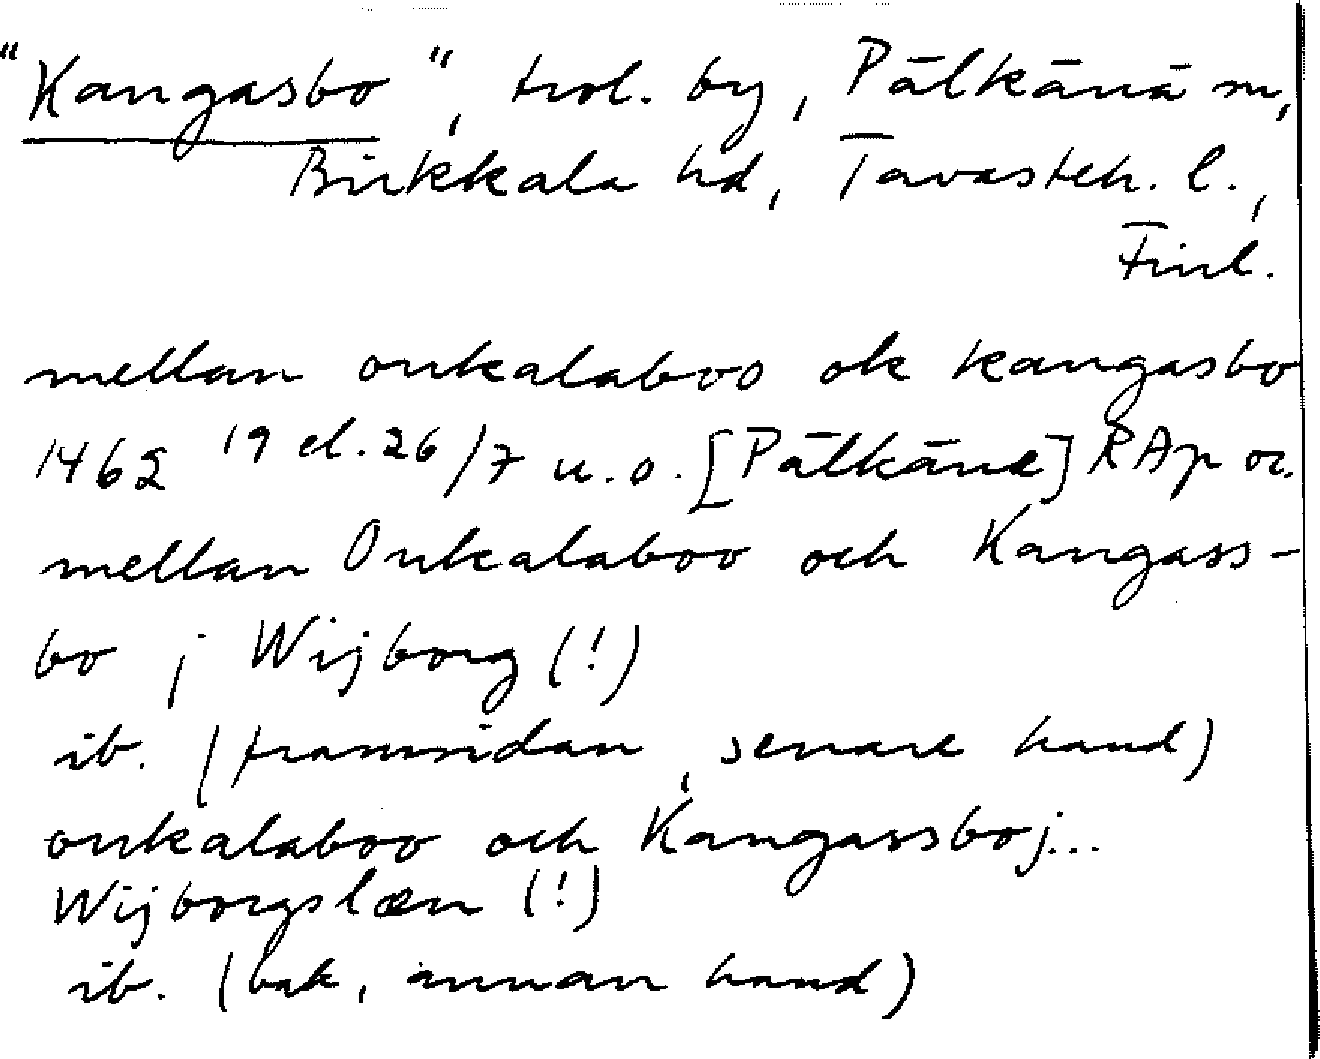 "Kangasbo", trol. by, Pälkänä sn,
Birkkala hd, Tavasteh. l.,
Finl.
mellan onkalaboo ok kangasbo
1462 19 el. 26/7 u.o. [Pälkäne] RAp or.
mellan Onkalaboo och Kangass-
bo j Wijborg (!)
ib. (framsidan, senare hand)
onkalaboo och Kangassbo j...
Wijborgslæn (!)
ib. (bak, annan hand)